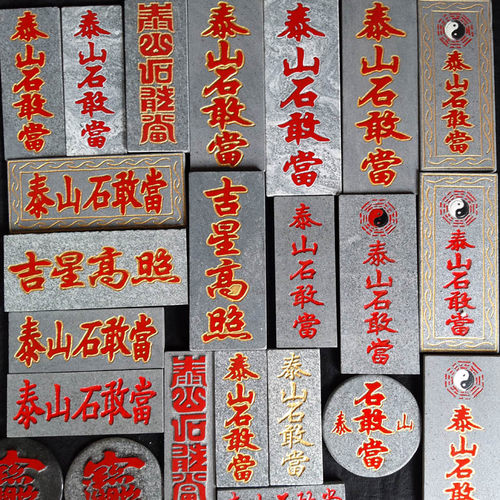 泰山石敢當
泰山石敢當
泰山石敢當
泰山石敢當
泰山石敢當
泰山石敢當
泰山石敢當
泰山石敢當
吉星高照
吉星高照
泰山石敢當
泰山石敢當
泰山石敢當
泰山石敢當
泰山石敢當
泰山石敢當
泰山石敢當
泰山石敢當
泰山
石敢當
泰山石